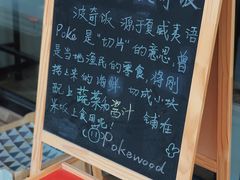 波奇饭 源于夏威夷语
Poke 是“切片”的意思,曾
是当地渔民的零食,将刚
捞上来的海鲜 切成小块
配上蔬菜和酱汁 铺在
米饭上食用吧!
Pokewood